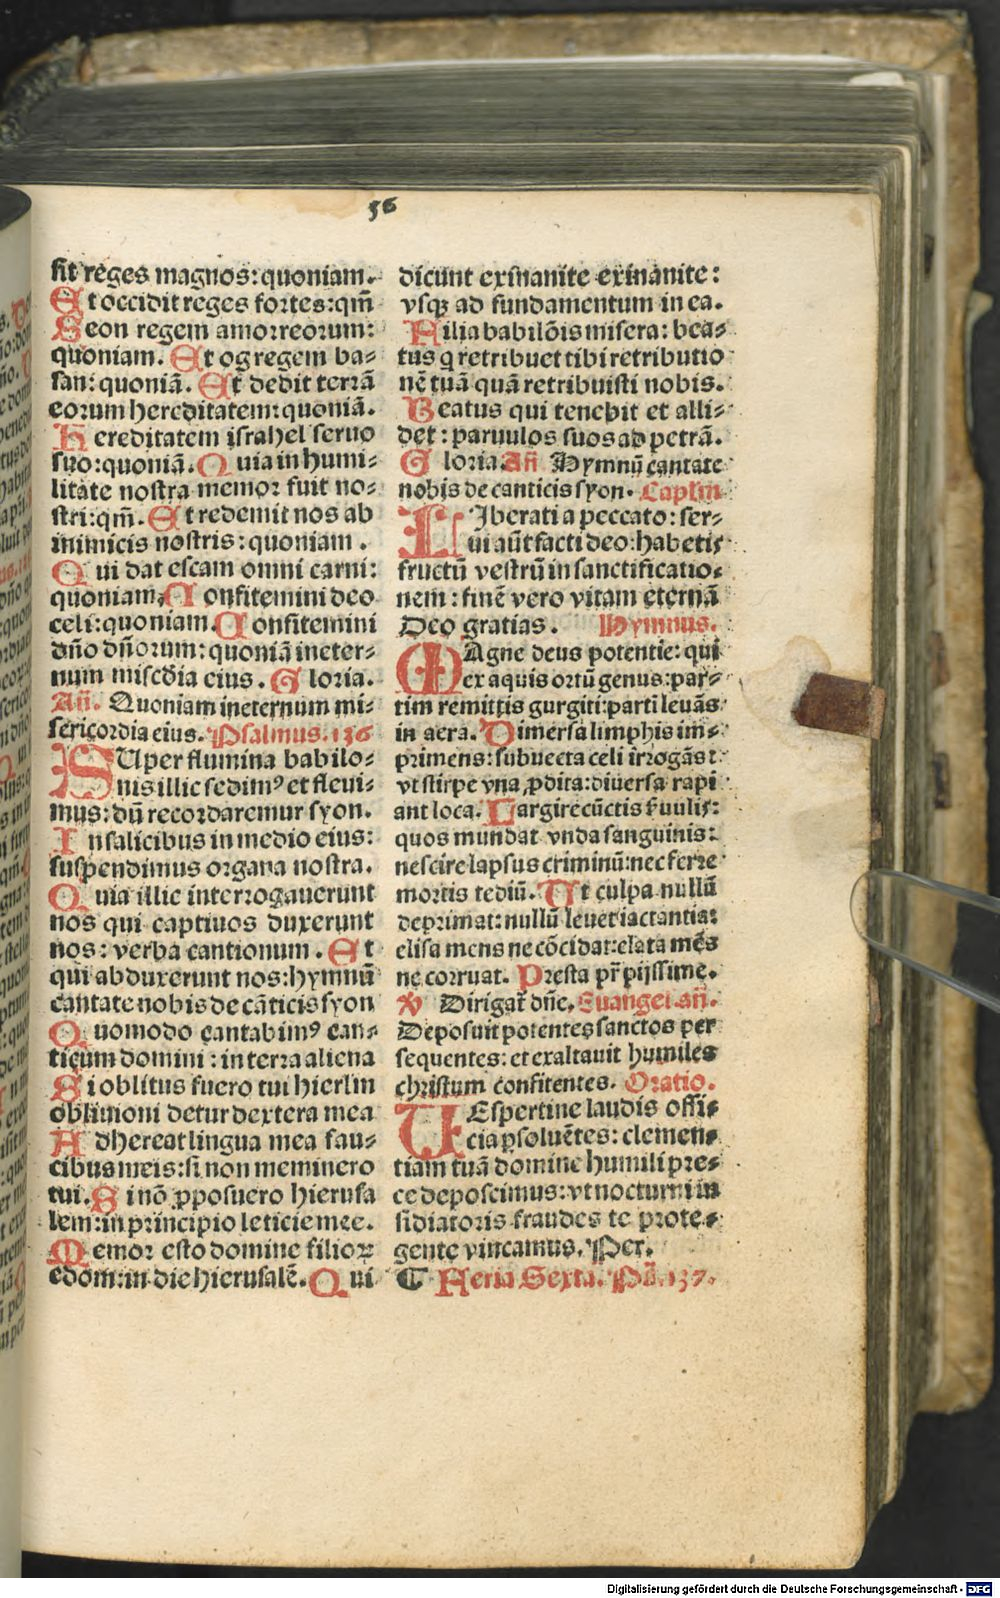 56
sit reges magnos: quoniam.
Et occidit reges fortes: qm̄
Seon regem amorreorum:
quoniam. Et og regem ba-
san: quoniā. Et dedit terrā
eorum hereditatem: quoniā.
Hereditatem israhel seruo
suo: quoniā. Quia in humi-
litate nostra memor fuit no-
stri: qm̄. Et redemit nos ab
inimicis nostris: quoniam.
Qui dat escam omni carni:
quoniam. Confitemini deo
celi: quoniam. Confitemini
dn̄o dn̄orum: quoniā in eter-
num misc̄dia eius. Gloria.
An̄. Quoniam in eternum mi-
sericordia eius. Psalmus. 136
SUper flumina babilo-
nis illic sedimꝰ et fleui-
mus: dū recordaremur syon.
In salicibus in medio eius:
suspendimus organa nostra.
Quia illic interrogauerunt
nos qui captiuos duxerunt
nos: verba cantionum. Et
qui abduxerunt nos: hymnū
cantate nobis de cāticis syon
Quomodo cantabimꝰ can-
ticum domini: in terra aliena
Si oblitus fuero tui hierlm
obliuioni detur dextera mea
Adhereat lingua mea fau-
cibus meis: si non meminero
tui. Si nō ꝓposuero hierusa
lem: in principio leticie mee.
Memor esto domine filioꝝ
edom: in die hierusalē. Qui
dicunt exinanite exinanite:
vsqꝫ ad fundamentum in ea.
Filia babilōis misera: bea-
tus q retribuet tibi retributio
nē tuā quā retribuisti nobis.
Beatus qui tenebit et alli-
det: paruulos suos ad petrā.
Gloria. An̄ Hymnū cantate
nobis de canticis syon. Caplm
LIberati a peccato: ser-
ui aūt facti deo: habetis
fructū vestrū in sanctificatio-
nem: finē vero vitam eternā
Deo gratias. Hymnus.
MAgne deus potentie: qui
ex aquis ortū genus: par-
tim remittis gurgiti: parti leuās
in aera. Dimersa limphis im-
primens: subuecta celi irrogās:
vt stirpe vna ꝓdita: diuersa rapi
ant loca. Largire cūctis s̄uulis:
quos mundat vnda sanguinis:
nescire lapsus criminū: nec ferre
mortis tediū. Ut culpa nullū
deprimat: nullū leuet iactantia:
elisa mens ne cōcidat: elata mēs
ne corruat. Presta pr̄ pijssime.
V Dirigat᷑ dn̄e. Euangel. an̄.
Deposuit potentes sanctos per
sequentes: et exaltauit humiles
christum confitentes. Oratio.
VEspertine laudis offi-
cia ꝑsoluētes: clemen-
tiam tuā domine humili pre-
ce deposcimus: vt nocturni in
sidiatoris fraudes te prote-
gente vincamus. Per.
Feria Sexta. Ps̄. 137.
Digitalisierung gefördert durch die Deutsche Forschungsgemeinschaft - DFG